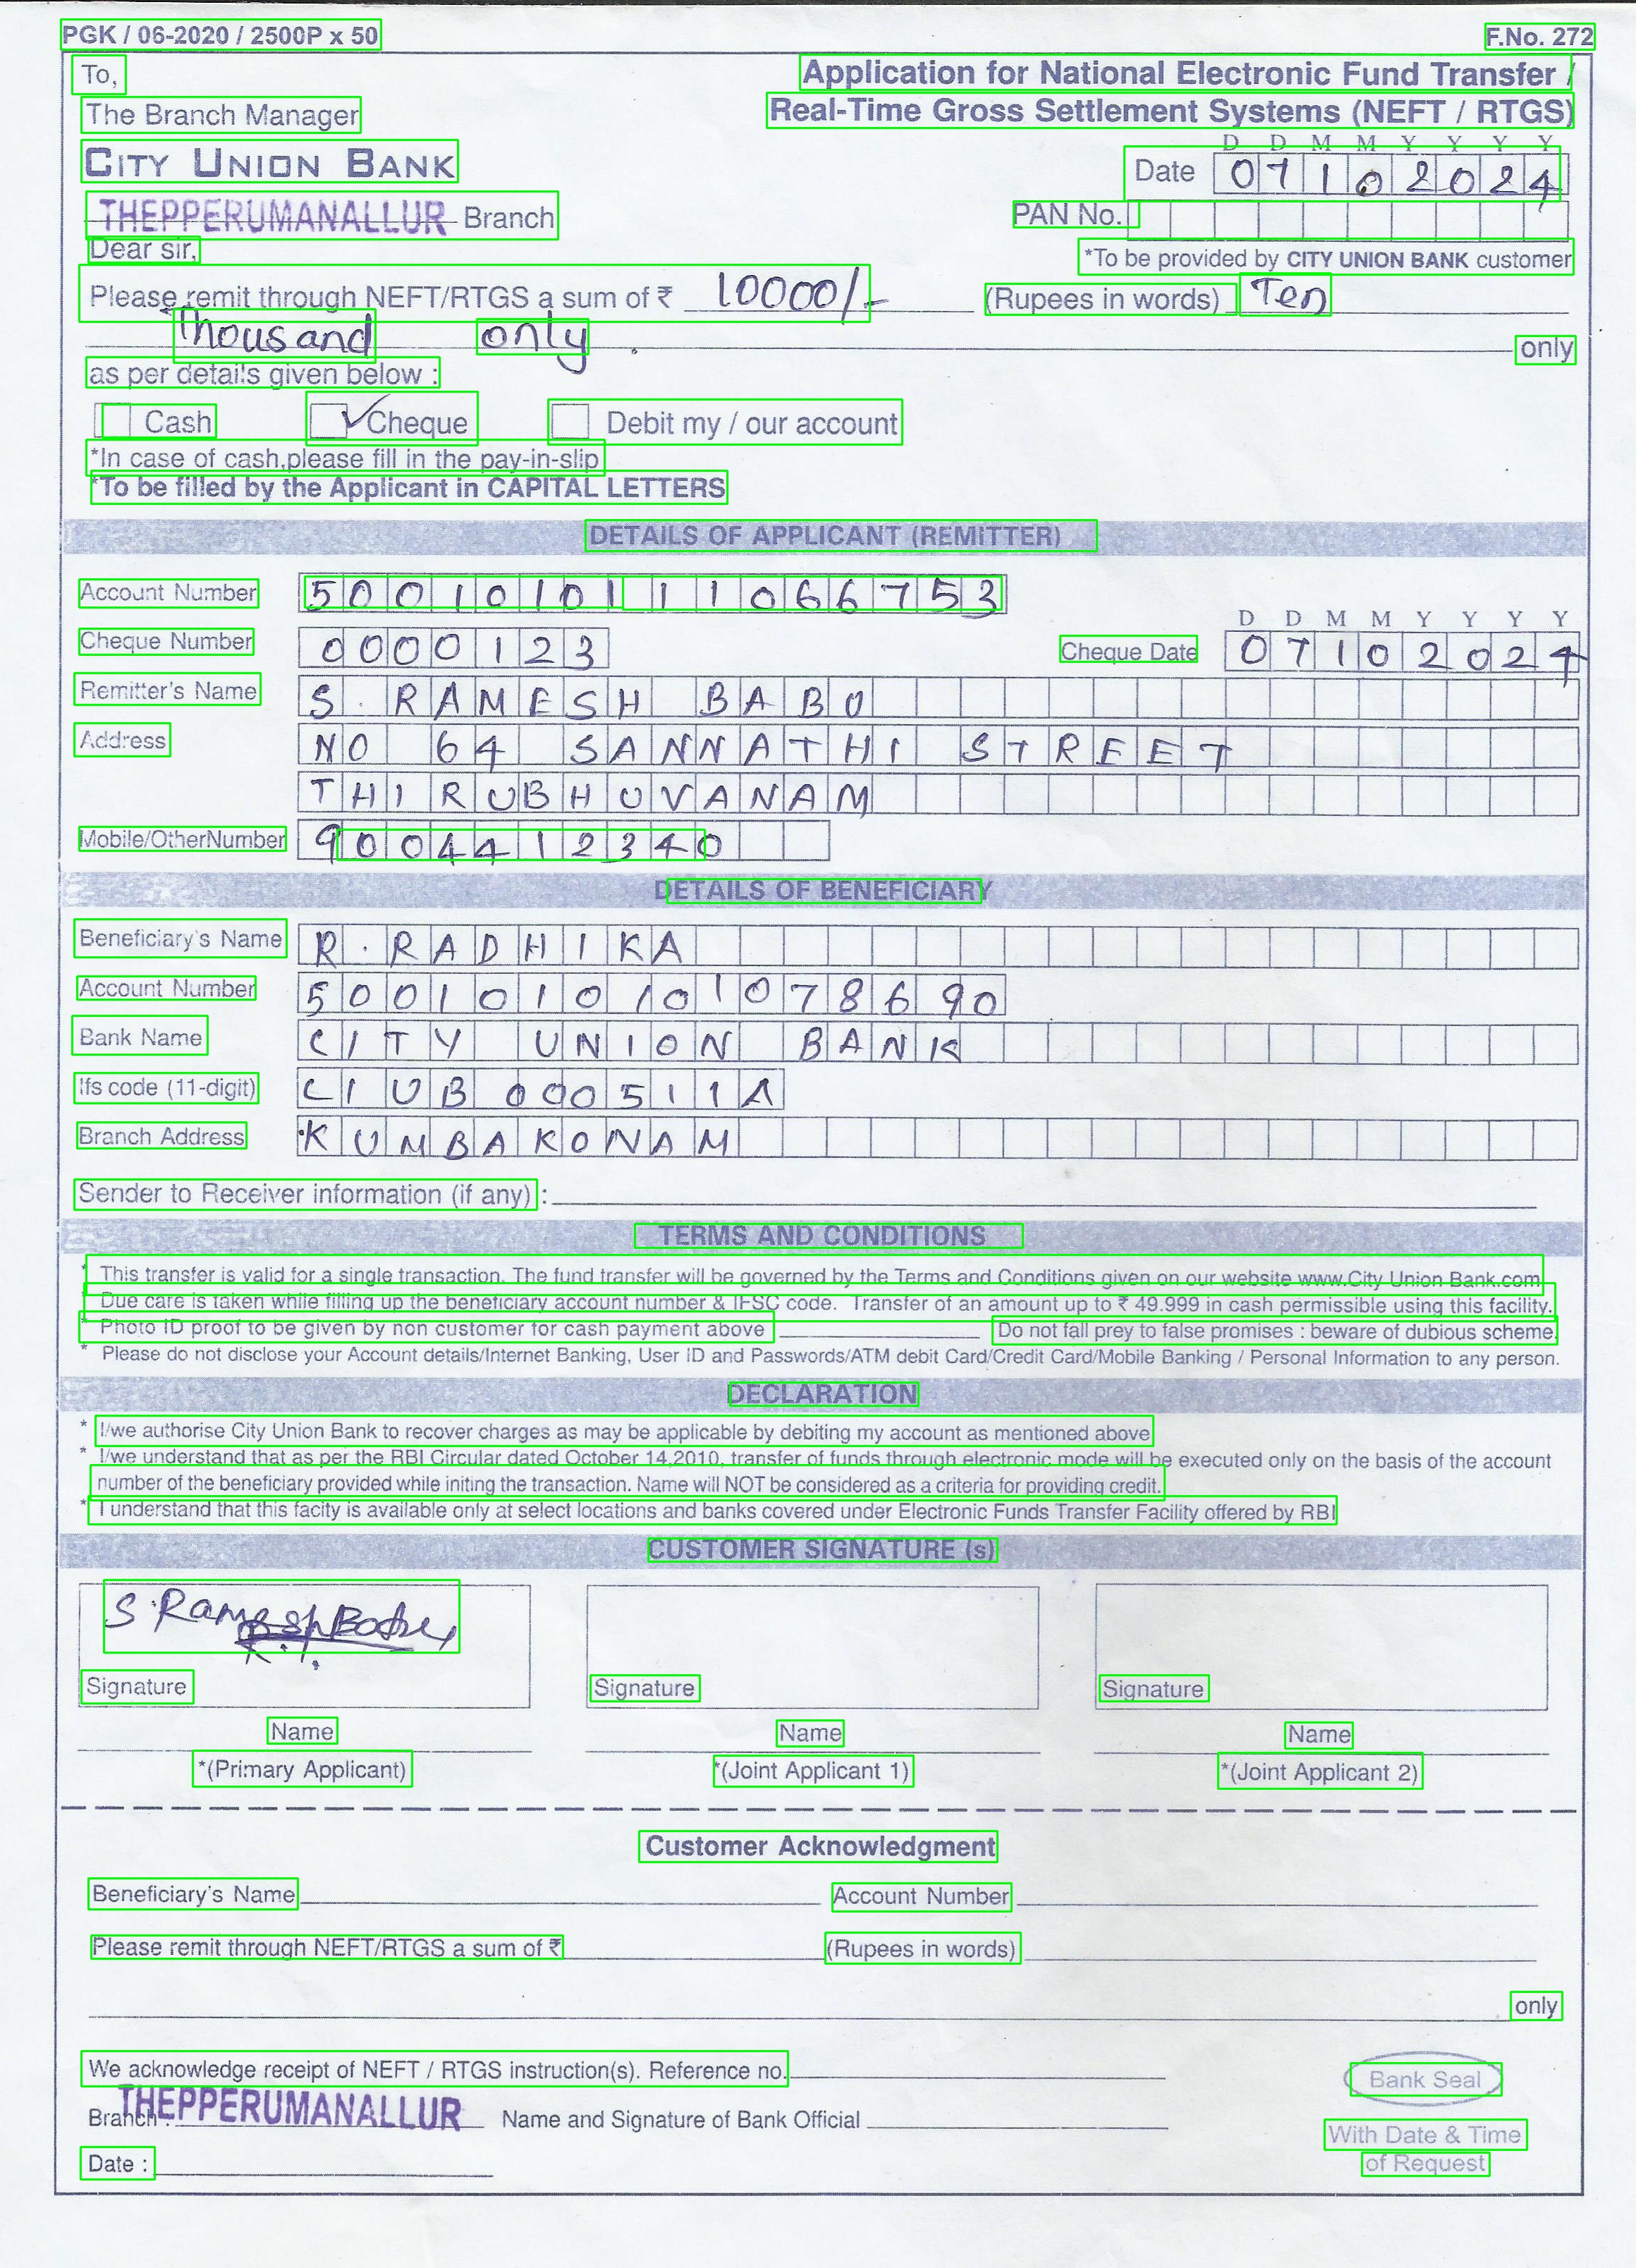 PGK / 06-2020 / 2500P x 50 F.No. 272
To,
Application for National Electronic Fund Transfer /
The Branch Manager
Real-Time Gross Settlement Systems (NEFT / RTGS)
CITY UNION BANK
D D M M Y Y Y Y
Date 07102024
THEPPERUMANALLUR Branch
PAN No.
Dear sir,
*To be provided by CITY UNION BANK customer
Please remit through NEFT/RTGS a sum of ₹ 10000/- (Rupees in words) Ten
Thousand only only
as per details given below :
Cash Cheque Debit my / our account
*In case of cash,please fill in the pay-in-slip
*To be filled by the Applicant in CAPITAL LETTERS
DETAILS OF APPLICANT (REMITTER)
Account Number 5001010111066753
D D M M Y Y Y Y
Cheque Number 0000123 Cheque Date 07102024
Remitter's Name S. RAMESH BABU
Address NO 64 SANNATHI STREET
THIRUBHUVANAM
Mobile/OtherNumber 9004412340
DETAILS OF BENEFICIARY
Beneficiary's Name R. RADHIKA
Account Number 5001010101078690
Bank Name CITY UNION BANK
Ifs code (11-digit) CIUB000511A
Branch Address KUMBAKONAM
Sender to Receiver information (if any) :
TERMS AND CONDITIONS
* This transfer is valid for a single transaction. The fund transfer will be governed by the Terms and Conditions given on our website www.City Union Bank.com
* Due care is taken while filling up the beneficiary account number & IFSC code. Transfer of an amount up to ₹ 49.999 in cash permissible using this facility.
* Photo ID proof to be given by non customer for cash payment above Do not fall prey to false promises : beware of dubious scheme.
* Please do not disclose your Account details/Internet Banking, User ID and Passwords/ATM debit Card/Credit Card/Mobile Banking / Personal Information to any person.
DECLARATION
* I/we authorise City Union Bank to recover charges as may be applicable by debiting my account as mentioned above
* I/we understand that as per the RBI Circular dated October 14,2010, transfer of funds through electronic mode will be executed only on the basis of the account
number of the beneficiary provided while initing the transaction. Name will NOT be considered as a criteria for providing credit.
* I understand that this facity is available only at select locations and banks covered under Electronic Funds Transfer Facility offered by RBI
CUSTOMER SIGNATURE (s)
S. Ramesh Babu
Signature Signature Signature
Name Name Name
*(Primary Applicant) *(Joint Applicant 1) *(Joint Applicant 2)
Customer Acknowledgment
Beneficiary's Name Account Number
Please remit through NEFT/RTGS a sum of ₹ (Rupees in words)
only
We acknowledge receipt of NEFT / RTGS instruction(s). Reference no.
Bank Seal
Branch : THEPPERUMANALLUR Name and Signature of Bank Official
With Date & Time
Date :
of Request